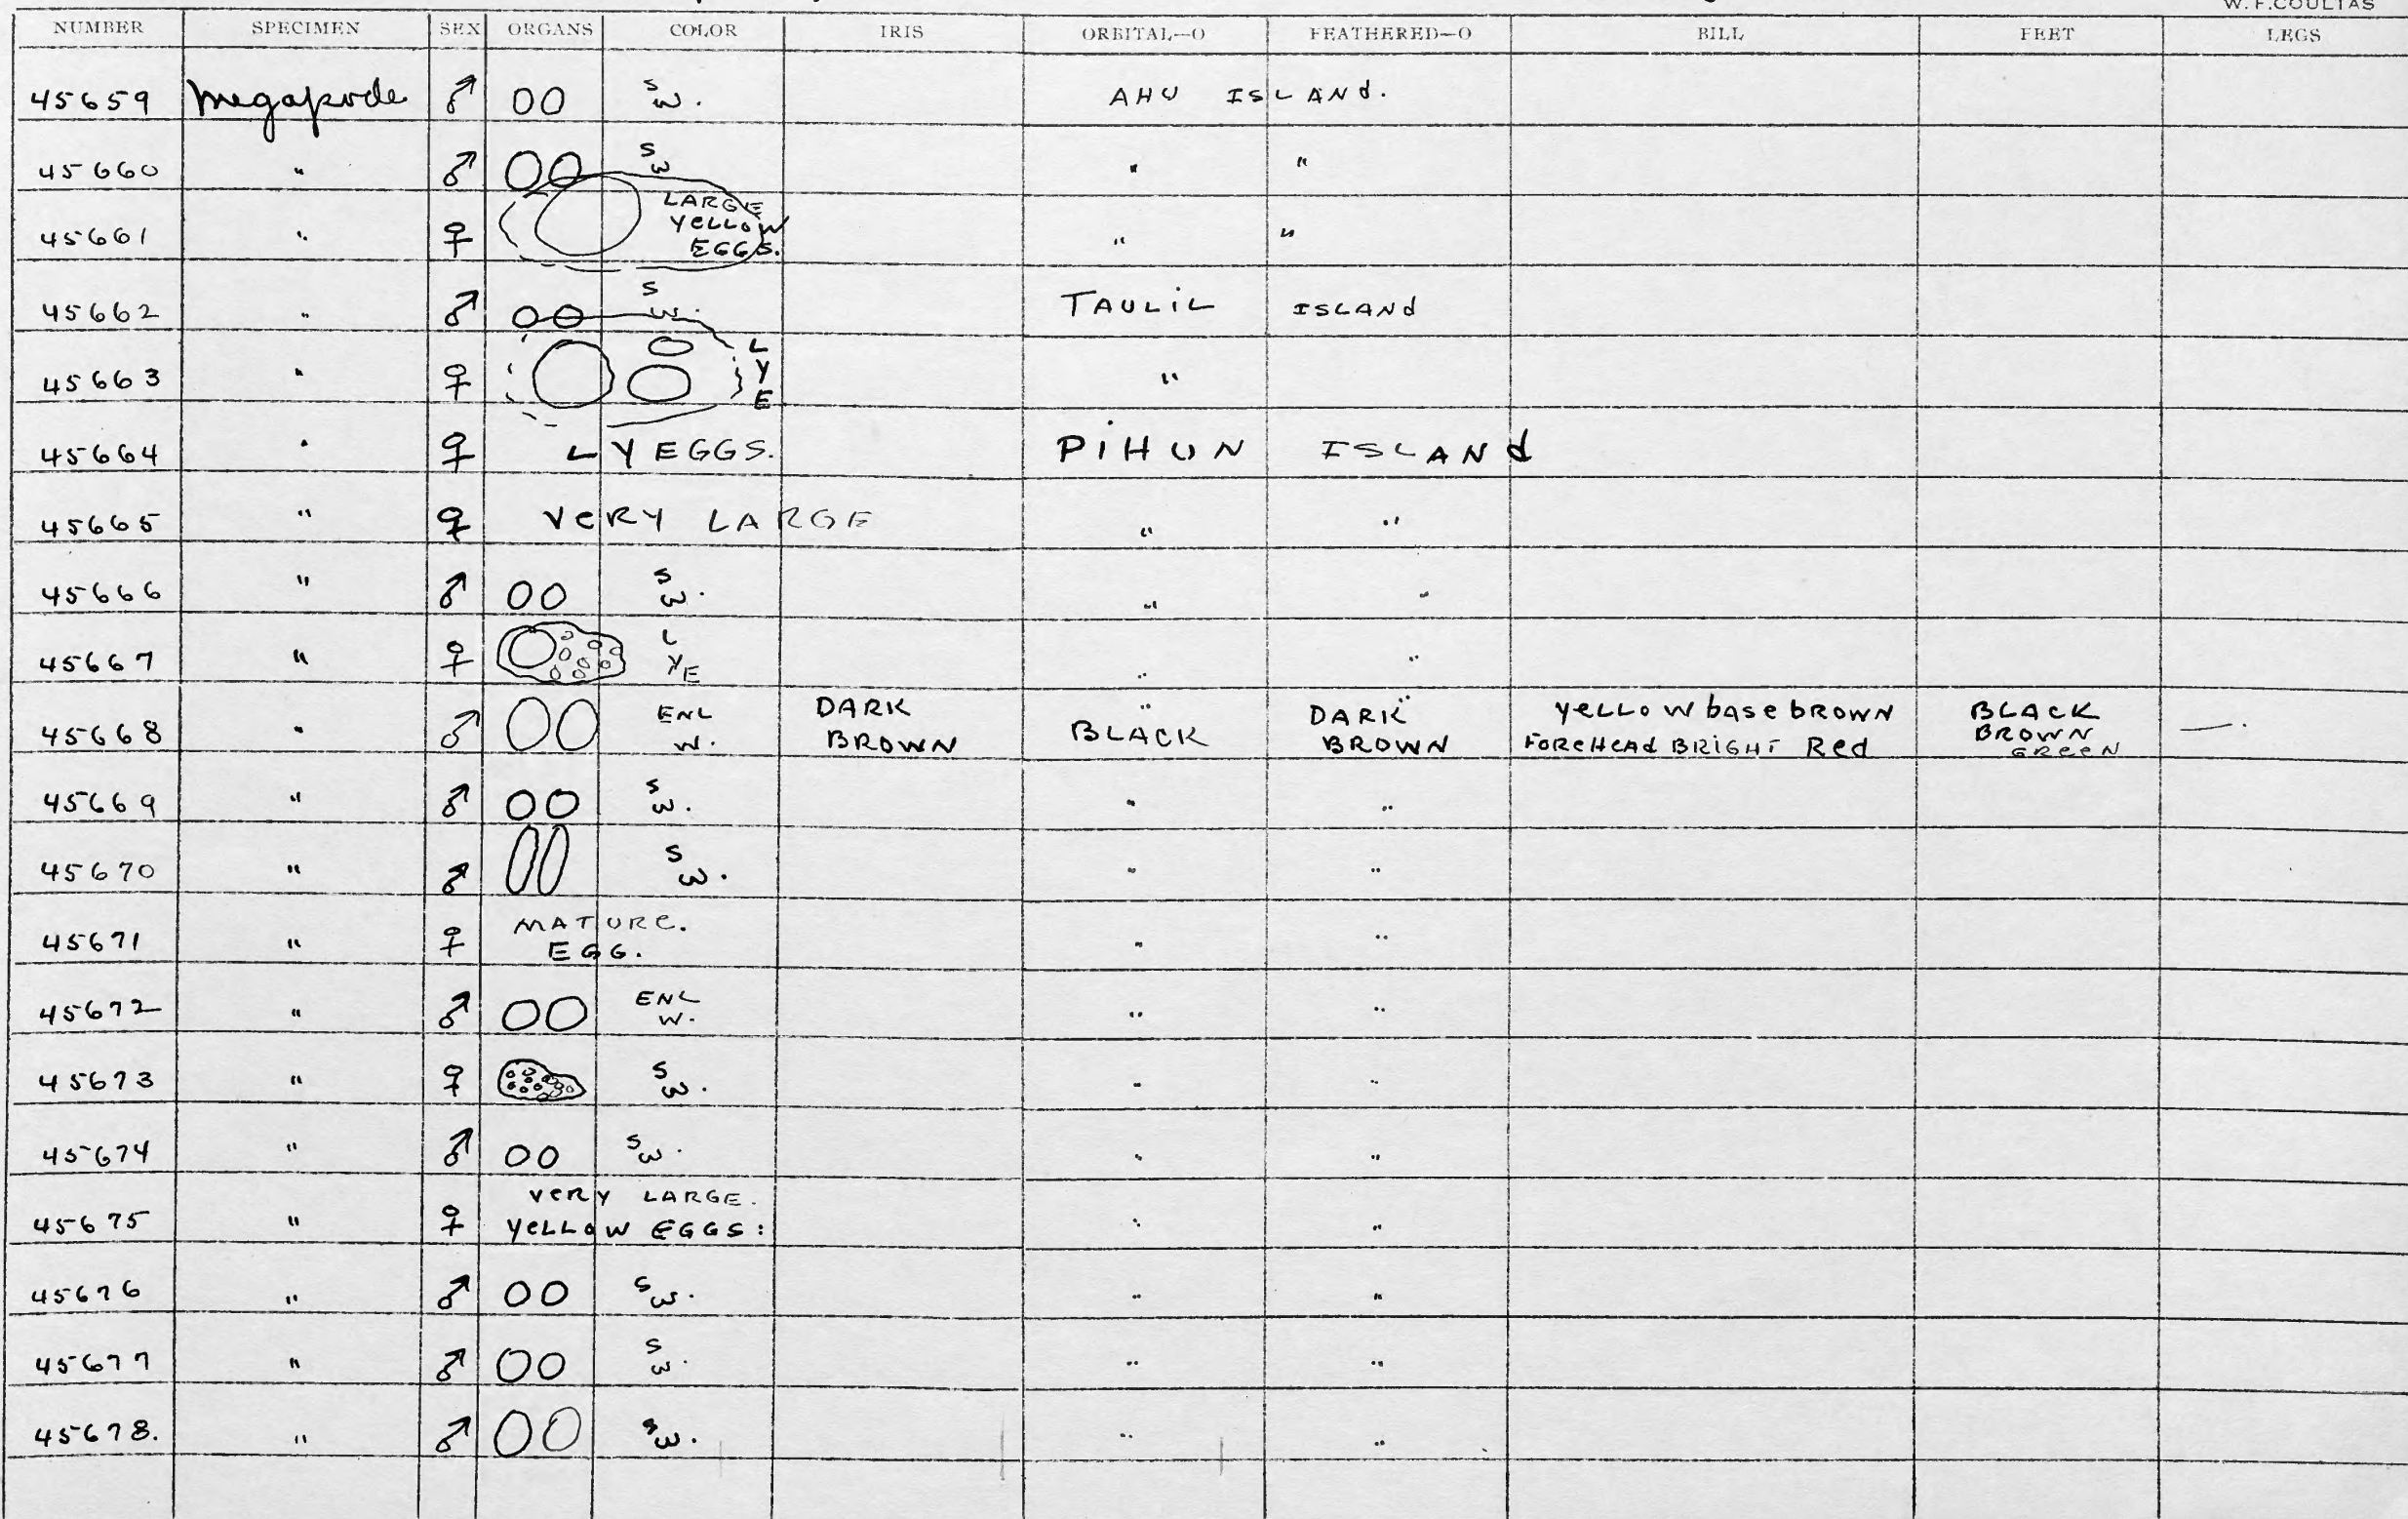 W. F. COULTAS
NUMBER SPECIMEN SEX ORGANS COLOR IRIS ORBITAL—O FEATHERED—O BILL FEET LEGS
45659 Megapode ♂ S W. AHU ISLANd.
45660 " ♂ S W " "
45661 " ♀ LARGE YeLLOW EGGS. " "
45662 " ♂ S W. TAULiL ISLANd
45663 " ♀ L Y E "
45664 " ♀ L Y EGGS. PiHUN ISLANd
45665 " ♀ VeRY LARGE " "
45666 " ♂ S W. " "
45667 " ♀ L Y E " "
45668 " ♂ ENL W. DARK BROWN " BLACK " DARK BROWN YeLLoW base bROWN FOReHeAd BRIGHT Red BLACK BROWN GReeN —.
45669 " ♂ S W. " "
45670 " ♂ S W. " "
45671 " ♀ MATURe. EGG. " "
45672 " ♂ ENL W. " "
45673 " ♀ S W. " "
45674 " ♂ S W. " "
45675 " ♀ VeRY LARGE. YeLLOW EGGS: " "
45676 " ♂ S W. " "
45677 " ♂ S W. " "
45678. " ♂ S W. " "